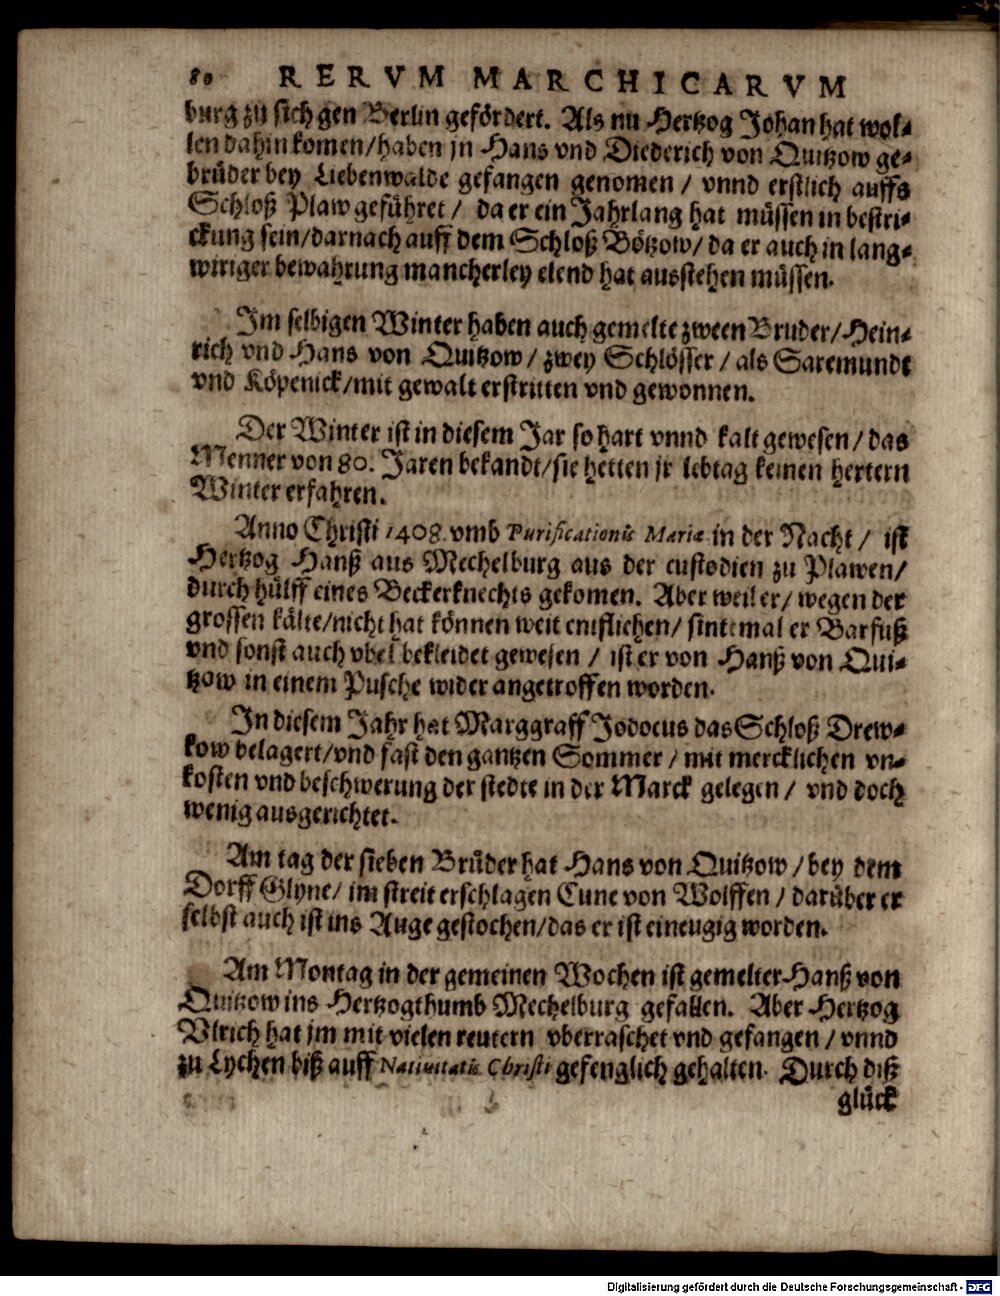 80 RERVM MARCHICARVM
burg zu sich gen Berlin gefördert. Als nu Hertzog Johan hat wol-
len dahin komen/haben jn Hans vnd Diederich von Quitzow ge-
brüder bey Liebenwalde gefangen genomen / vnnd erstlich auffs
Schloß Plaw geführet / da er ein Jahrlang hat müssen in bestri-
ckung sein/darnach auff dem Schloß Bötzow/ da er auch in lang-
wiriger bewahrung mancherley elend hat ausstehen müssen.
Im selbigen Winter haben auch gemelte zween Bruder/Hein-
rich vnd Hans von Quitzow / zwey Schlösser / als Saremundt
vnd Köpenick/mit gewalt erstritten vnd gewonnen.
Der Winter ist in diesem Jar so hart vnnd kalt gewesen / das
Menner von 80. Jaren bekandt/sie hetten jr lebtag keinen hertern
Winter erfahren.
Anno Christi 1408. vmb Purificationis Mariæ in der Nacht / ist
Hertzog Hanß aus Mechelburg aus der custodien zu Plawen/
durch hülff eines Beckerknechts gekomen. Aber weil er/ wegen der
grossen kälte/nicht hat können weit entfliehen/ sintemal er Barfuß
vnd sonst auch vbel bekleidet gewesen / ist er von Hanß von Qui-
tzow in einem Pusche wider angetroffen worden.
In diesem Jahr hat Marggraff Jodocus das Schloß Drew-
kow belagert/vnd fast den gantzen Sommer / mit mercklichen vn-
kosten vnd beschwerung der stedte in der Marck gelegen / vnd doch
wenig ausgerichtet.
Am tag der sieben Brüder hat Hans von Quitzow / bey dem
Dorff Glyne/ im streit erschlagen Cune von Wolffen / darüber er
selbst auch ist ins Auge gestochen/das er ist eineugig worden.
Am Montag in der gemeinen Wochen ist gemelter Hanß von
Quitzow ins Hertzogthumb Mechelburg gefallen. Aber Hertzog
Vlrich hat jm mit vielen reutern vberraschet vnd gefangen / vnnd
zu Lychen biß auff Natiuitatis Christi gefenglich gehalten. Durch diß
glück
Digitalisierung gefördert durch die Deutsche Forschungsgemeinschaft - DFG